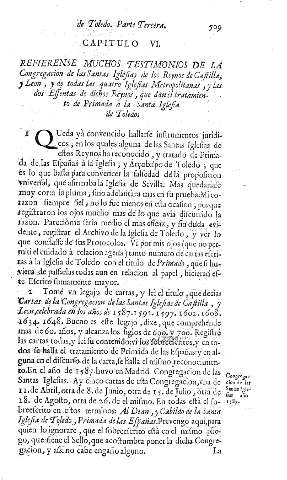 de Toledo. Parte Tercera. 509
CAPITULO VI.
REFIERENSE MUCHOS TESTIMONIOS DE LA
Congregacion de las Santas Iglesias de los Reynos de Castilla,
y Leon, y de todas las quatro Iglesias Metropolitanas, y las
dos Essentas de dichos Reynos, que dan el tratamien-
to de Primada à la Santa Iglesia
de Toledo.
1 Queda yà convencido hallarse instrumentos juridi-
cos, en los quales alguna de las Santas Iglesias de
estos Reynos ha reconocido, y tratado de Prima-
da de las Españas à la Iglesia, y Arçobispo de Toledo; que
es lo que basta para convencer la falsedad de la proposicion
vniversal, que afirmaba la Iglesia de Sevilla. Mas quedariase
muy corta la pluma, si no adelantara mas es su prueba. Mi co-
razon siempre fiel, no lo fue menos en esta ocasion, porque
registraron los ojos mucho mas de lo que avia discurrido la
razon. Parecióme seria medio el mas eficaz, y sin duda evi-
dente, registrar el Archivo de la Iglesia de Toledo, y ver lo
que constasse de sus Protocolos. Vi por mis ojos (que no per-
mití el cuidado à relacion agena) tanto numero de cartas escri-
tas à la Iglesia de Toledo con el titulo de Primado, que si hu-
viera de passarlas todas aun en relacion al papel, hiciera es-
te Escrito sumamente mayor.
2 Tomè vn legajo de cartas, y leì el titulo, que decia:
Cartas de la Congregacion de las Santas Iglesias de Castilla, y
Leon, celebrada en los años de 1587. 1592. 1597. 1602. 1608.
1634. 1648. Bueno es este legajo, dixe, que comprehende
mas de 60. años, y alcanza los siglos de 600. y 700. Registrè
las cartas todas, y leì su contenido y los sobrescritos, y en to-
dos se halla el tratamiento de Primada de las Españas, y en al-
guna en el discurso de la carta, se halla el mismo reconocimien-
to. En el año de 1587. huvo en Madrid Congregacion de las
Santas Iglesias. Ay cinco cartas de esta Congregacion, vna de
11. de Abril, otra de 8. de Junio, otra de 15. de Julio, otra de
18. de Agosto, otra de 26. de el mismo. En todas està el so-
brescrito en estos terminos: Al Dean, y Cabildo de la Santa
Iglesia de Toledo, Primada de las Españas. Prevengo aqui, para
quien lo ignorare, que el sobrescrito està en el mismo plie-
go, que tiene el Sello, que acostumbra poner la dicha Congre-
gacion, y assi no cabe engaño alguno.
La
Congrega-
cion de las
Santas Igle-
sias año
1587.